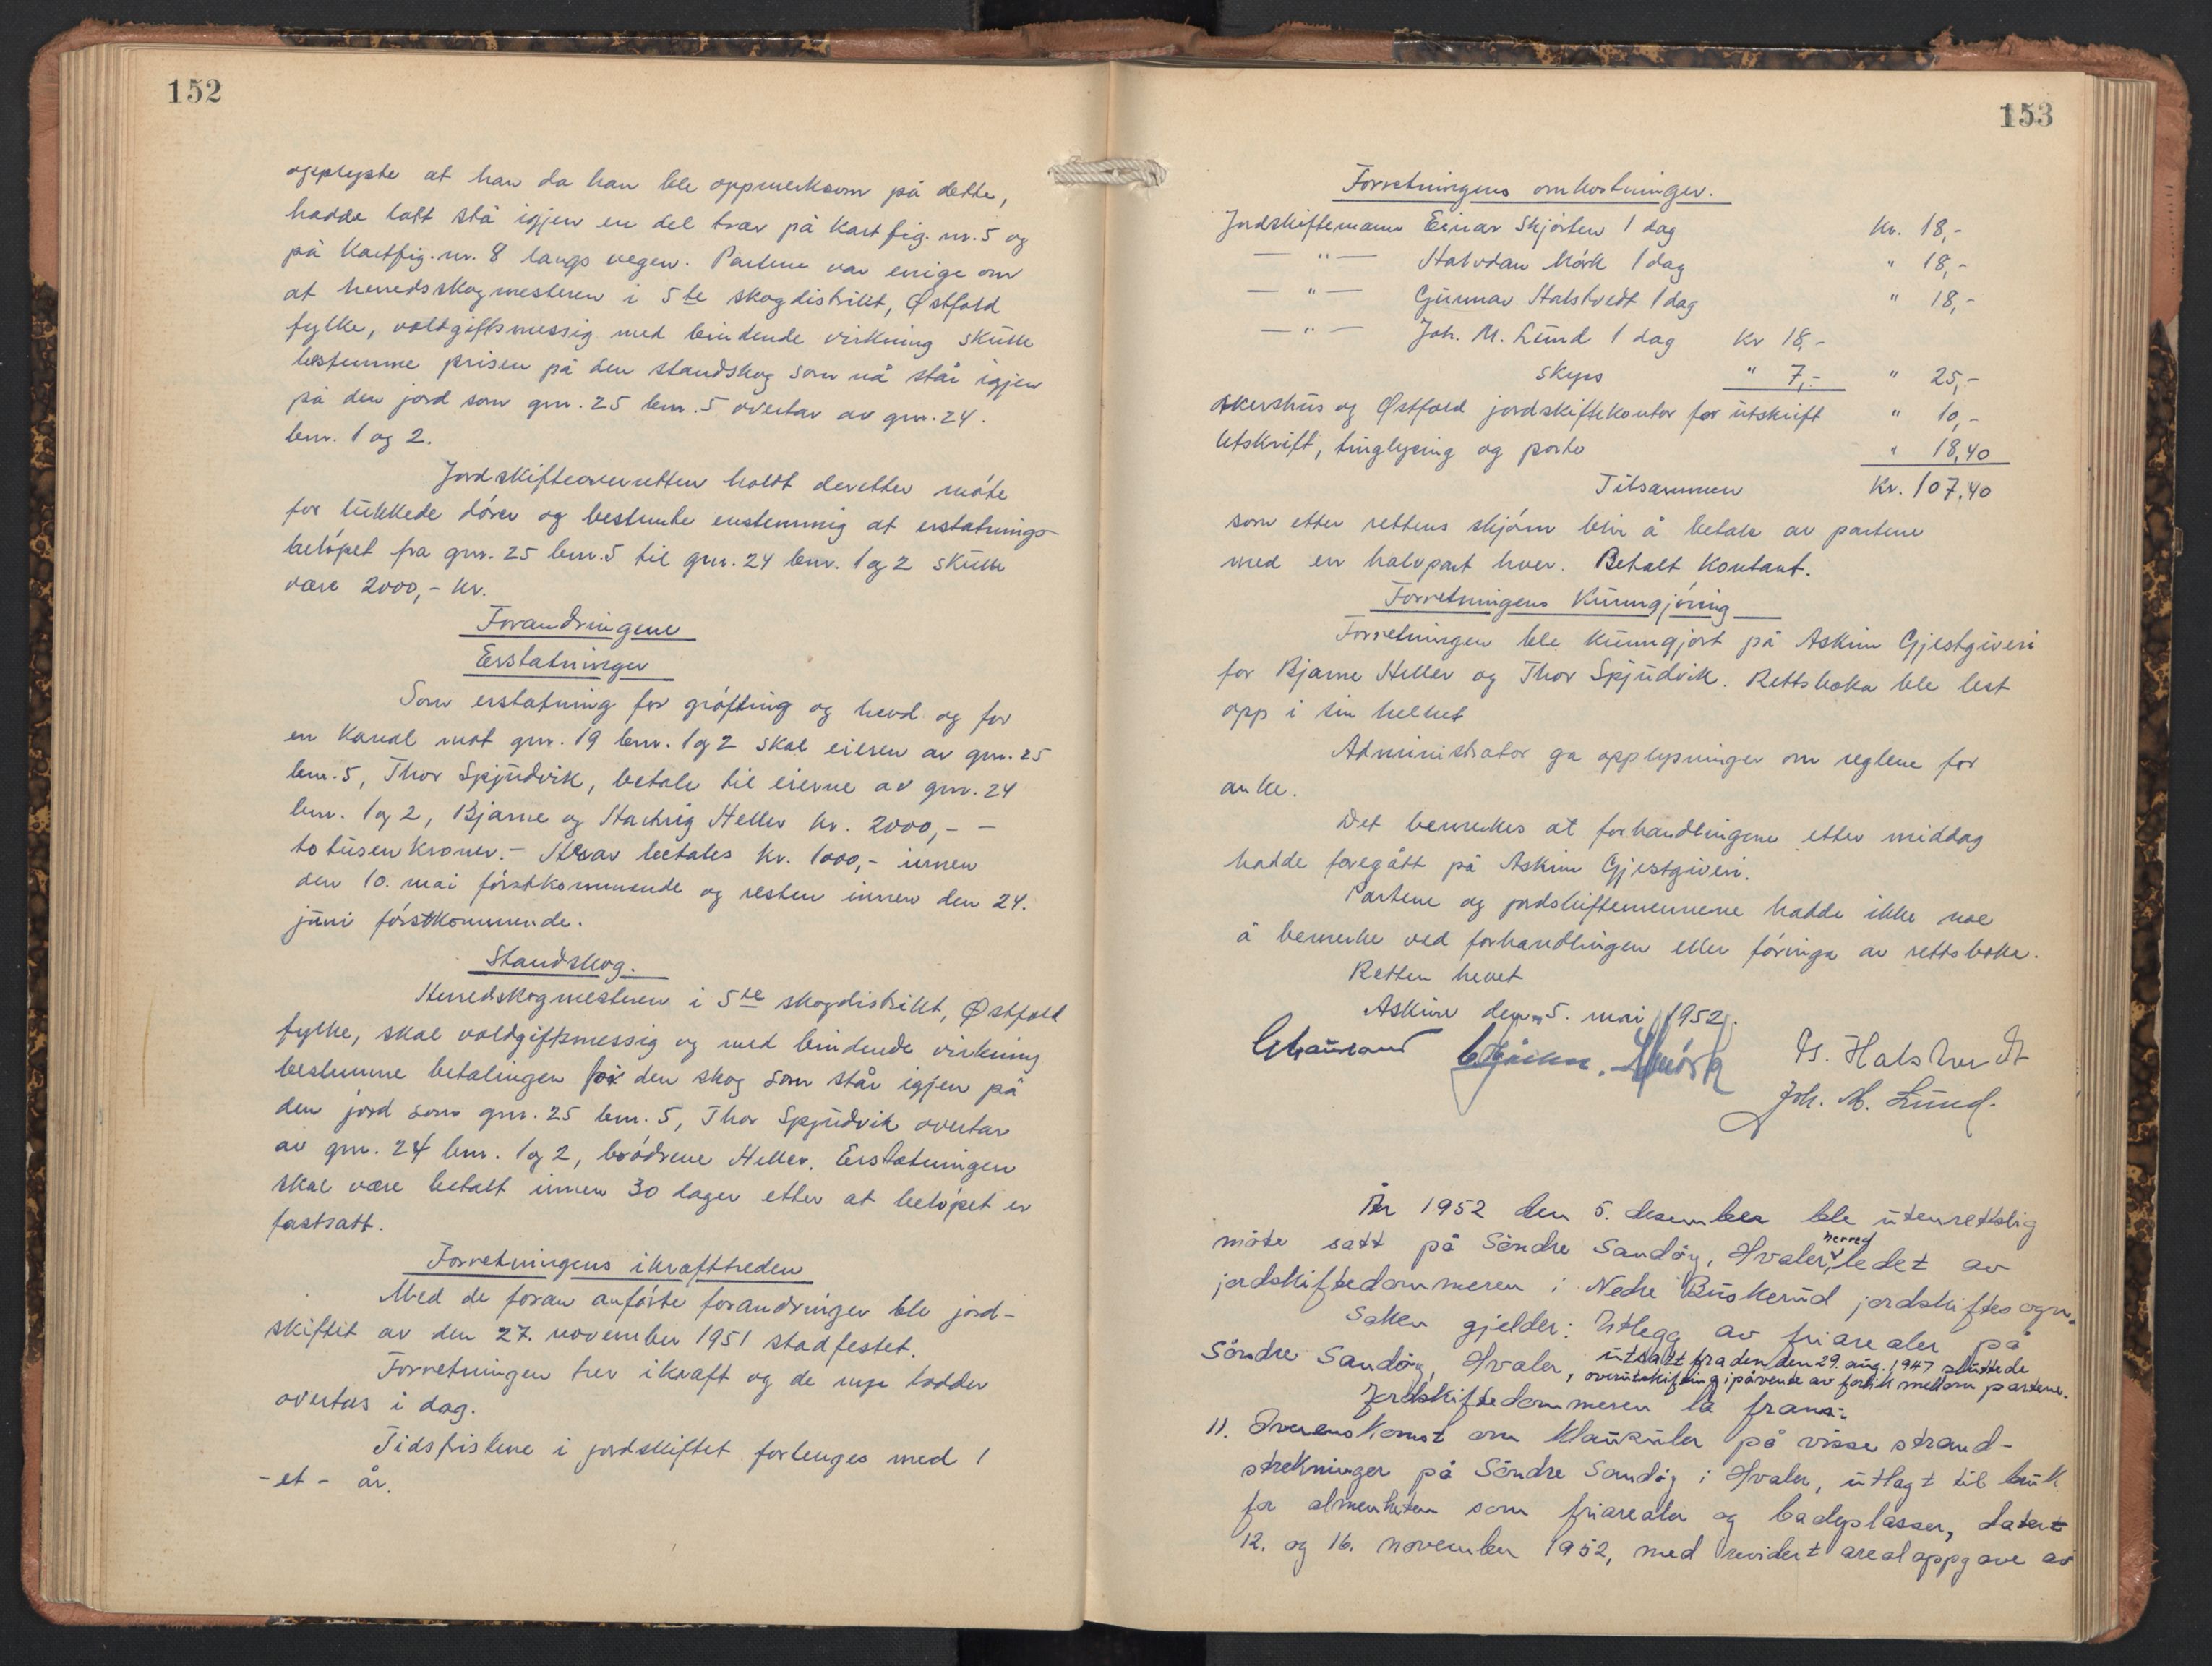 152
opplyste at han da han ble oppmerksom på dette,
hadde latt stå igjen en del trær på kart fig. nr. 5 og
på kartfig. nr. 8 langs vegen. Partene var enige om
at herredsskogmesteren i 5te skogdistrikt, Østfold
fylke, voldgiftsmessig med bindende virkning skulle
bestemme prisen på den standskog som nå står igjen
på den jord som gnr. 25 bnr. 5 overtar av gnr. 24.
bnr. 1 og 2.
Jordskifteoverretten holdt deretter møte
for lukkede dører og bestemte enstemmig at erstatnings-
beløpet fra gnr. 25 bnr. 5 til gnr. 24 bnr. 1 og 2 skulle
være 2000,- kr.
Forandringene
Erstatninger
Som erstatning for grøfting og hevd og for
en kanal mot gnr. 19 bnr. 1 og 2 skal eieren av gnr. 25
bnr. 5, Thor Spjudvik, betale til eierne av gnr. 24
bnr. 1 og 2, Bjarne og Heller kr. 2000,- -
totusenkroner.- Herav betales kr. 1000,- innen
den 10. mai førstkommende og resten innen den 24.
juni førstkommende.
Standskog.
Herredskogmesteren i 5te skogdistrikt, Østfold
fylke, skal voldgiftsmessig og med bindende virkning
bestemme betalingen for den skog som står igjen på
den jord som gnr. 25 bnr. 5, Thor Spjudvik overtar
av gnr. 24 bnr. 1 og 2, brødrene Heller. Erstatningen
skal være betalt innen 30 dager etter at beløpet er
fastsatt.
Forretningens ikrafttreden
Med de foran anførte forandringer ble jord-
skiftet av den 27. november 1951 stadfestet.
Forretningen trer ikraft og de nye lodder
overtas i dag.
Tidsfristene i jordskiftet forlenges med 1
- et - år.
153
Forretningens omkostninger.
Jordskiftemann Einar Skjørten 1 dag Kr. 18,-
— " — Halvdan Mørk 1 dag " 18,-
— " — Gunnar Halstvedt 1 dag " 18,-
— " — Joh. M. Lund 1 dag Kr 18,-
skyss " 7,- " 25,-
Akershus og Østfold jordskiftekontor for utskrift " 10,-
Utskrift, tinglysing og porto " 18,40
Tilsammen Kr. 107,40
som etter rettens skjønn blir å betale av partene
med en halvpart hver. Betalt kontant.
Forretningens kunngjøring
Forretningen ble kunngjort på Askim Gjestgiveri
for Bjarne Heller og Thor Spjudvik. Rettsboka ble lest
opp i sin helhet
Administrator ga opplysninger om reglene for
anke.
Det bemerkes at forhandlingene etter middag
hadde foregått på Askim Gjestgiveri.
Partene og jordskiftemennene hadde ikke noe
å bemerke ved forhandlingen eller føringa av rettsboka.
Retten hevet
Askim den 5. mai 1952.
G. Halstvedt
Joh. M. Lund.
År 1952 den 5. desember ble utenrettslig
møte satt på Søndre Sandøy, Hvaler herred, ledet av
jordskiftedommeren i Nedre Buskerud jordskiftesogn.
Saken gjelder: Utlegg av friarealer på
Søndre Sandøy, Hvaler, utsatt fra den den 29. aug. 1947 sluttede
overutskifting i påvente av forlik mellom partene.
Jordskiftedommeren la fram:
1). Overenskomst om klausuler på visse strand-
strekninger på Søndre Sandøy i Hvaler, utlagt til bruk
for almenheten som friarealer og badeplasser, datert
12. og 16. november 1952, med revidert arealoppgave av